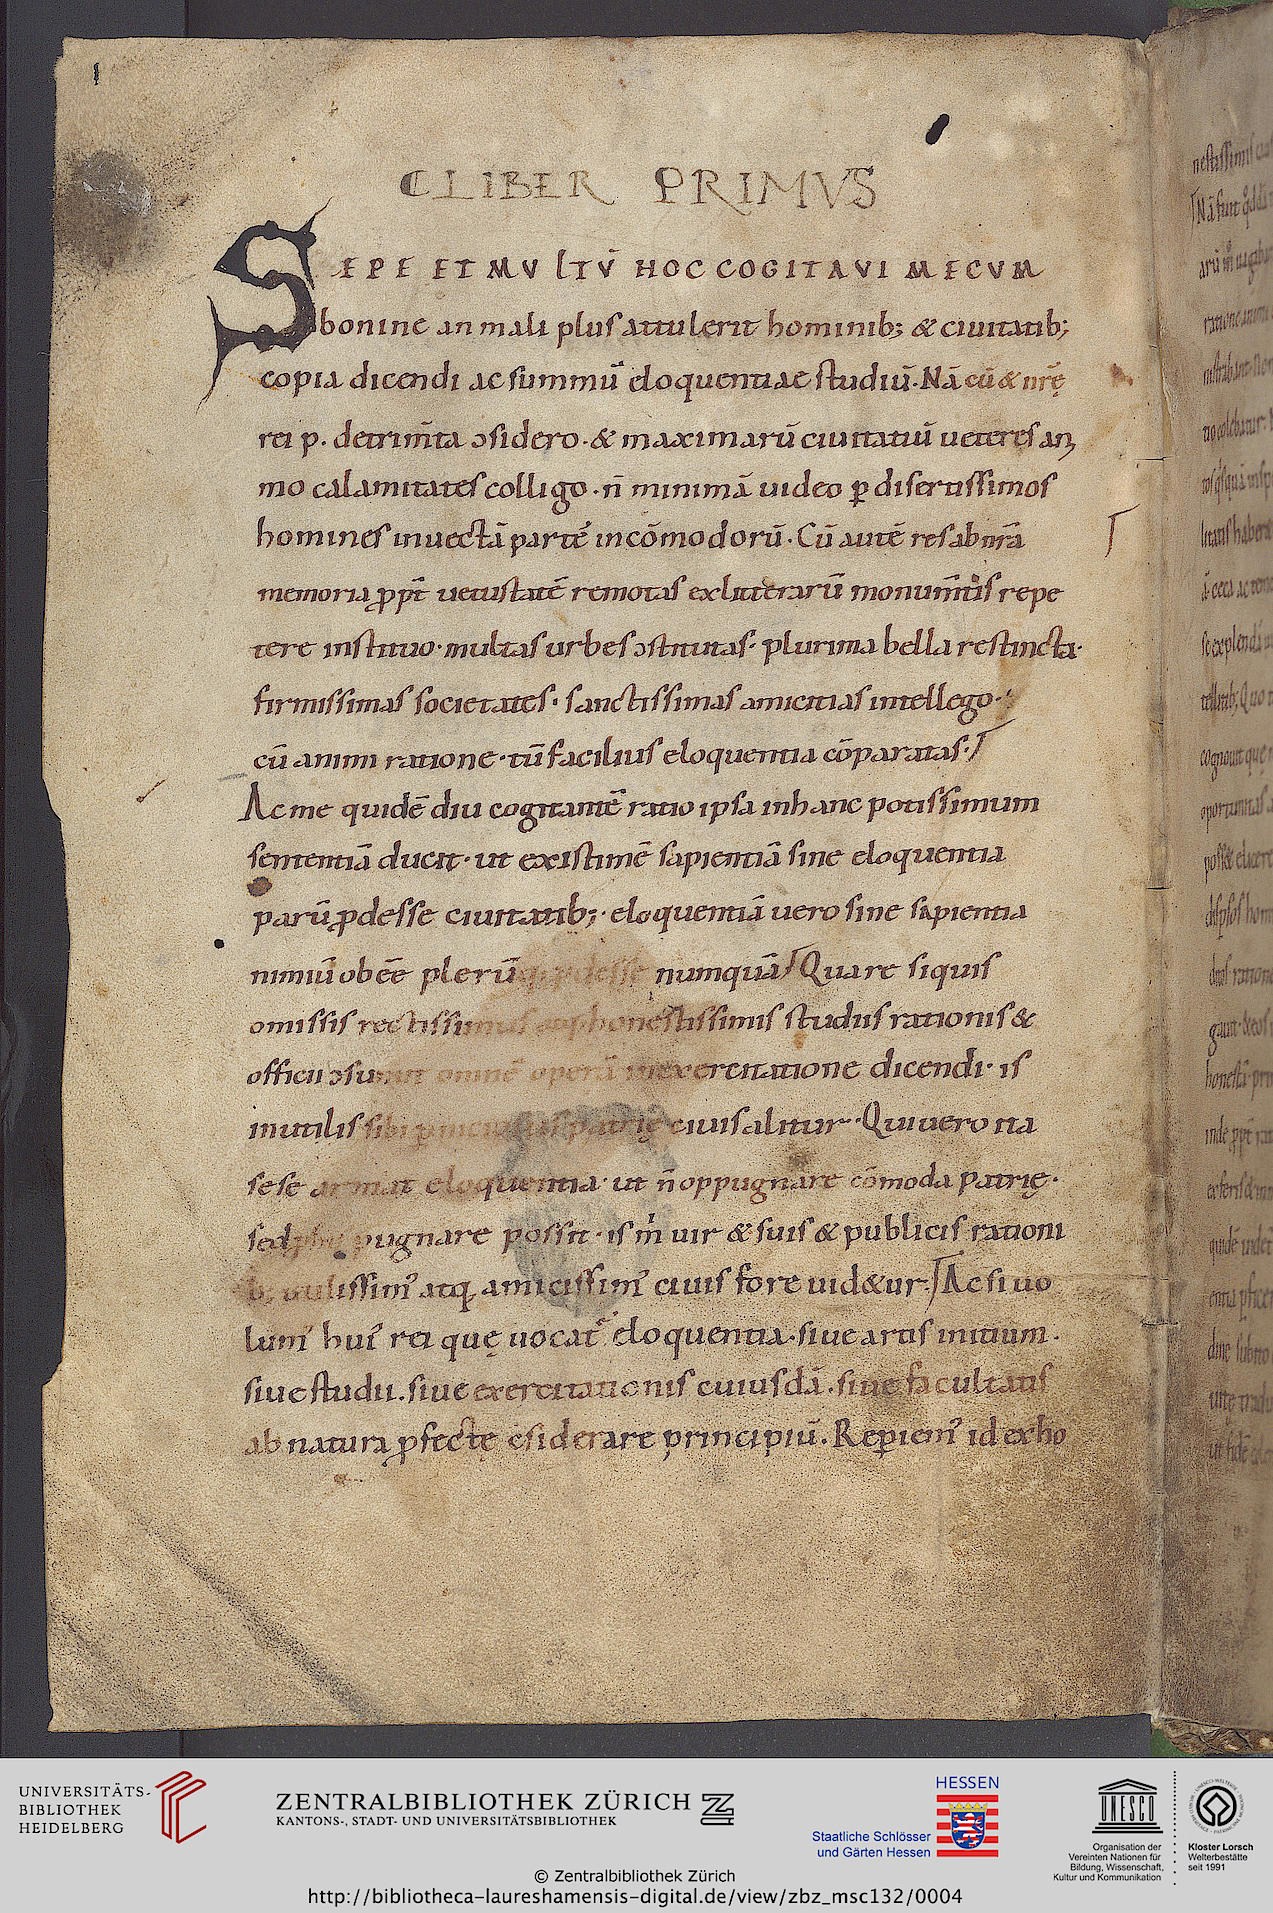 I
LIBER PRIMVS
SEPE ET MVLTŪ HOC COGITAVI MECVM
bonine an mali plus attulerit hominib; & ciuitatib;
copia dicendi ac summū eloquentiae studiū. Nā cū & nrę̄
rei p. detrim̄ta ɔsidero. & maximarū ciuitatiū ueteres ani
mo calamitates colligo. n̄ minimā uideo ꝑ disertissimos
homines inuectā partē incōmodorū. Cū autē res ab nr̄a
memoria ꝓpt̄ uetustatē remotas ex litterarū monum̄tis repe
tere instituo. multas urbes ɔstitutas. plurima bella restincta.
firmissimas societates. sanctissimas amicitias intellego.
cū animi ratione. tū facilius eloquentia cōparatas.
Ac me quidē diu cogitantē ratio ipsa in hanc potissimum
sententiā ducit. ut existimē sapientiā sine eloquentia
parū ꝓdesse ciuitatib;. eloquentiā uero sine sapientia
nimiū obeē̄ plerūq; ꝓdesse numquā. Quare siquis
omissis rectissimis atq; honestissimis studiis rationis &
officii ɔsumit omnē operā in exercitatione dicendi. is
inutilis sibi ꝑniciosus patrię ciuis alitur. Qui uero ita
sese armat eloquentia. ut n̄ oppugnare cōmoda patrię.
sed pugnare possit. is m̄ uir & suis & publicis rationi
b; utilissim' atq; amicissim' ciuis fore uid&ur. Ac si uo
lum' hui' rei quę uocat̄ eloquentia. siue artis initium.
siue studii. siue exercitationis cuiusdā. siue facultatis
ab natura ꝓfectę ɔsiderare principiū. Reperiem' id ex ho
UNIVERSITÄTS-
BIBLIOTHEK
HEIDELBERG
ZENTRALBIBLIOTHEK ZÜRICH
KANTONS-, STADT- UND UNIVERSITÄTSBIBLIOTHEK
HESSEN
Staatliche Schlösser
und Gärten Hessen
UNESCO
Organisation der
Vereinten Nationen für
Bildung, Wissenschaft,
Kultur und Kommunikation
Kloster Lorsch
Welterbestätte
seit 1991
© Zentralbibliothek Zürich
http://bibliotheca-laureshamensis-digital.de/view/zbz_msc132/0004